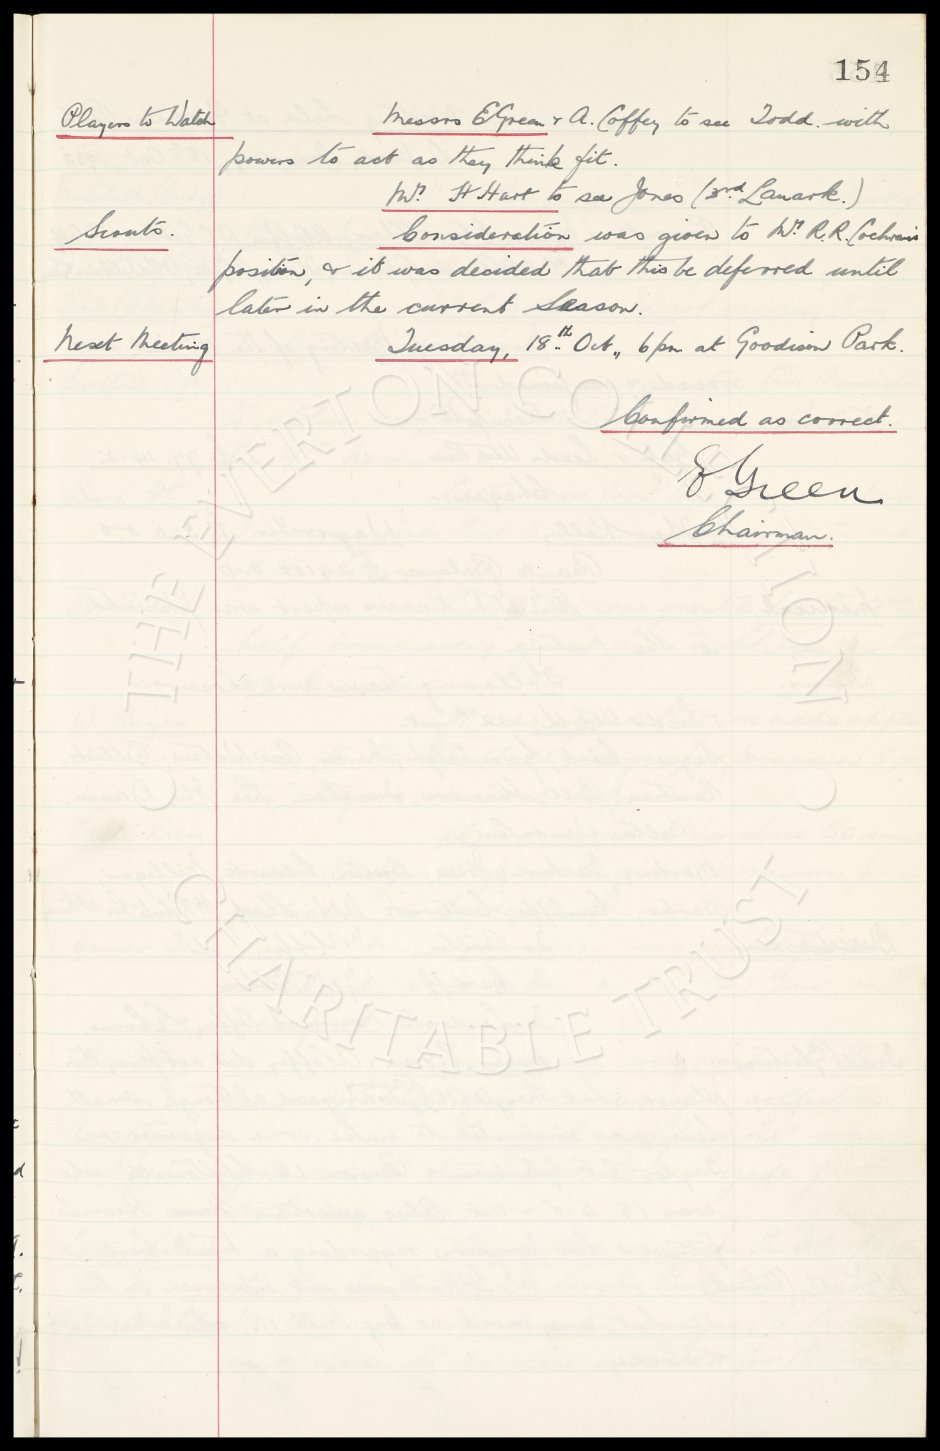 154
Players to Watch Messrs E Green & A. Coffey to see Todd. with
powers to act as they think fit.
Mr. H Hart to see Jones (3rd Lanark.)
Scouts. Consideration was given to Mr R. R. Cochran's
position, & it was decided that this be deferred until
later in the current Season.
Next Meeting Tuesday, 18th Oct., 6 pm at Goodison Park.
Confirmed as correct.
E Green
Chairman.
THE EVERTON COLLECTION
CHARITABLE TRUST